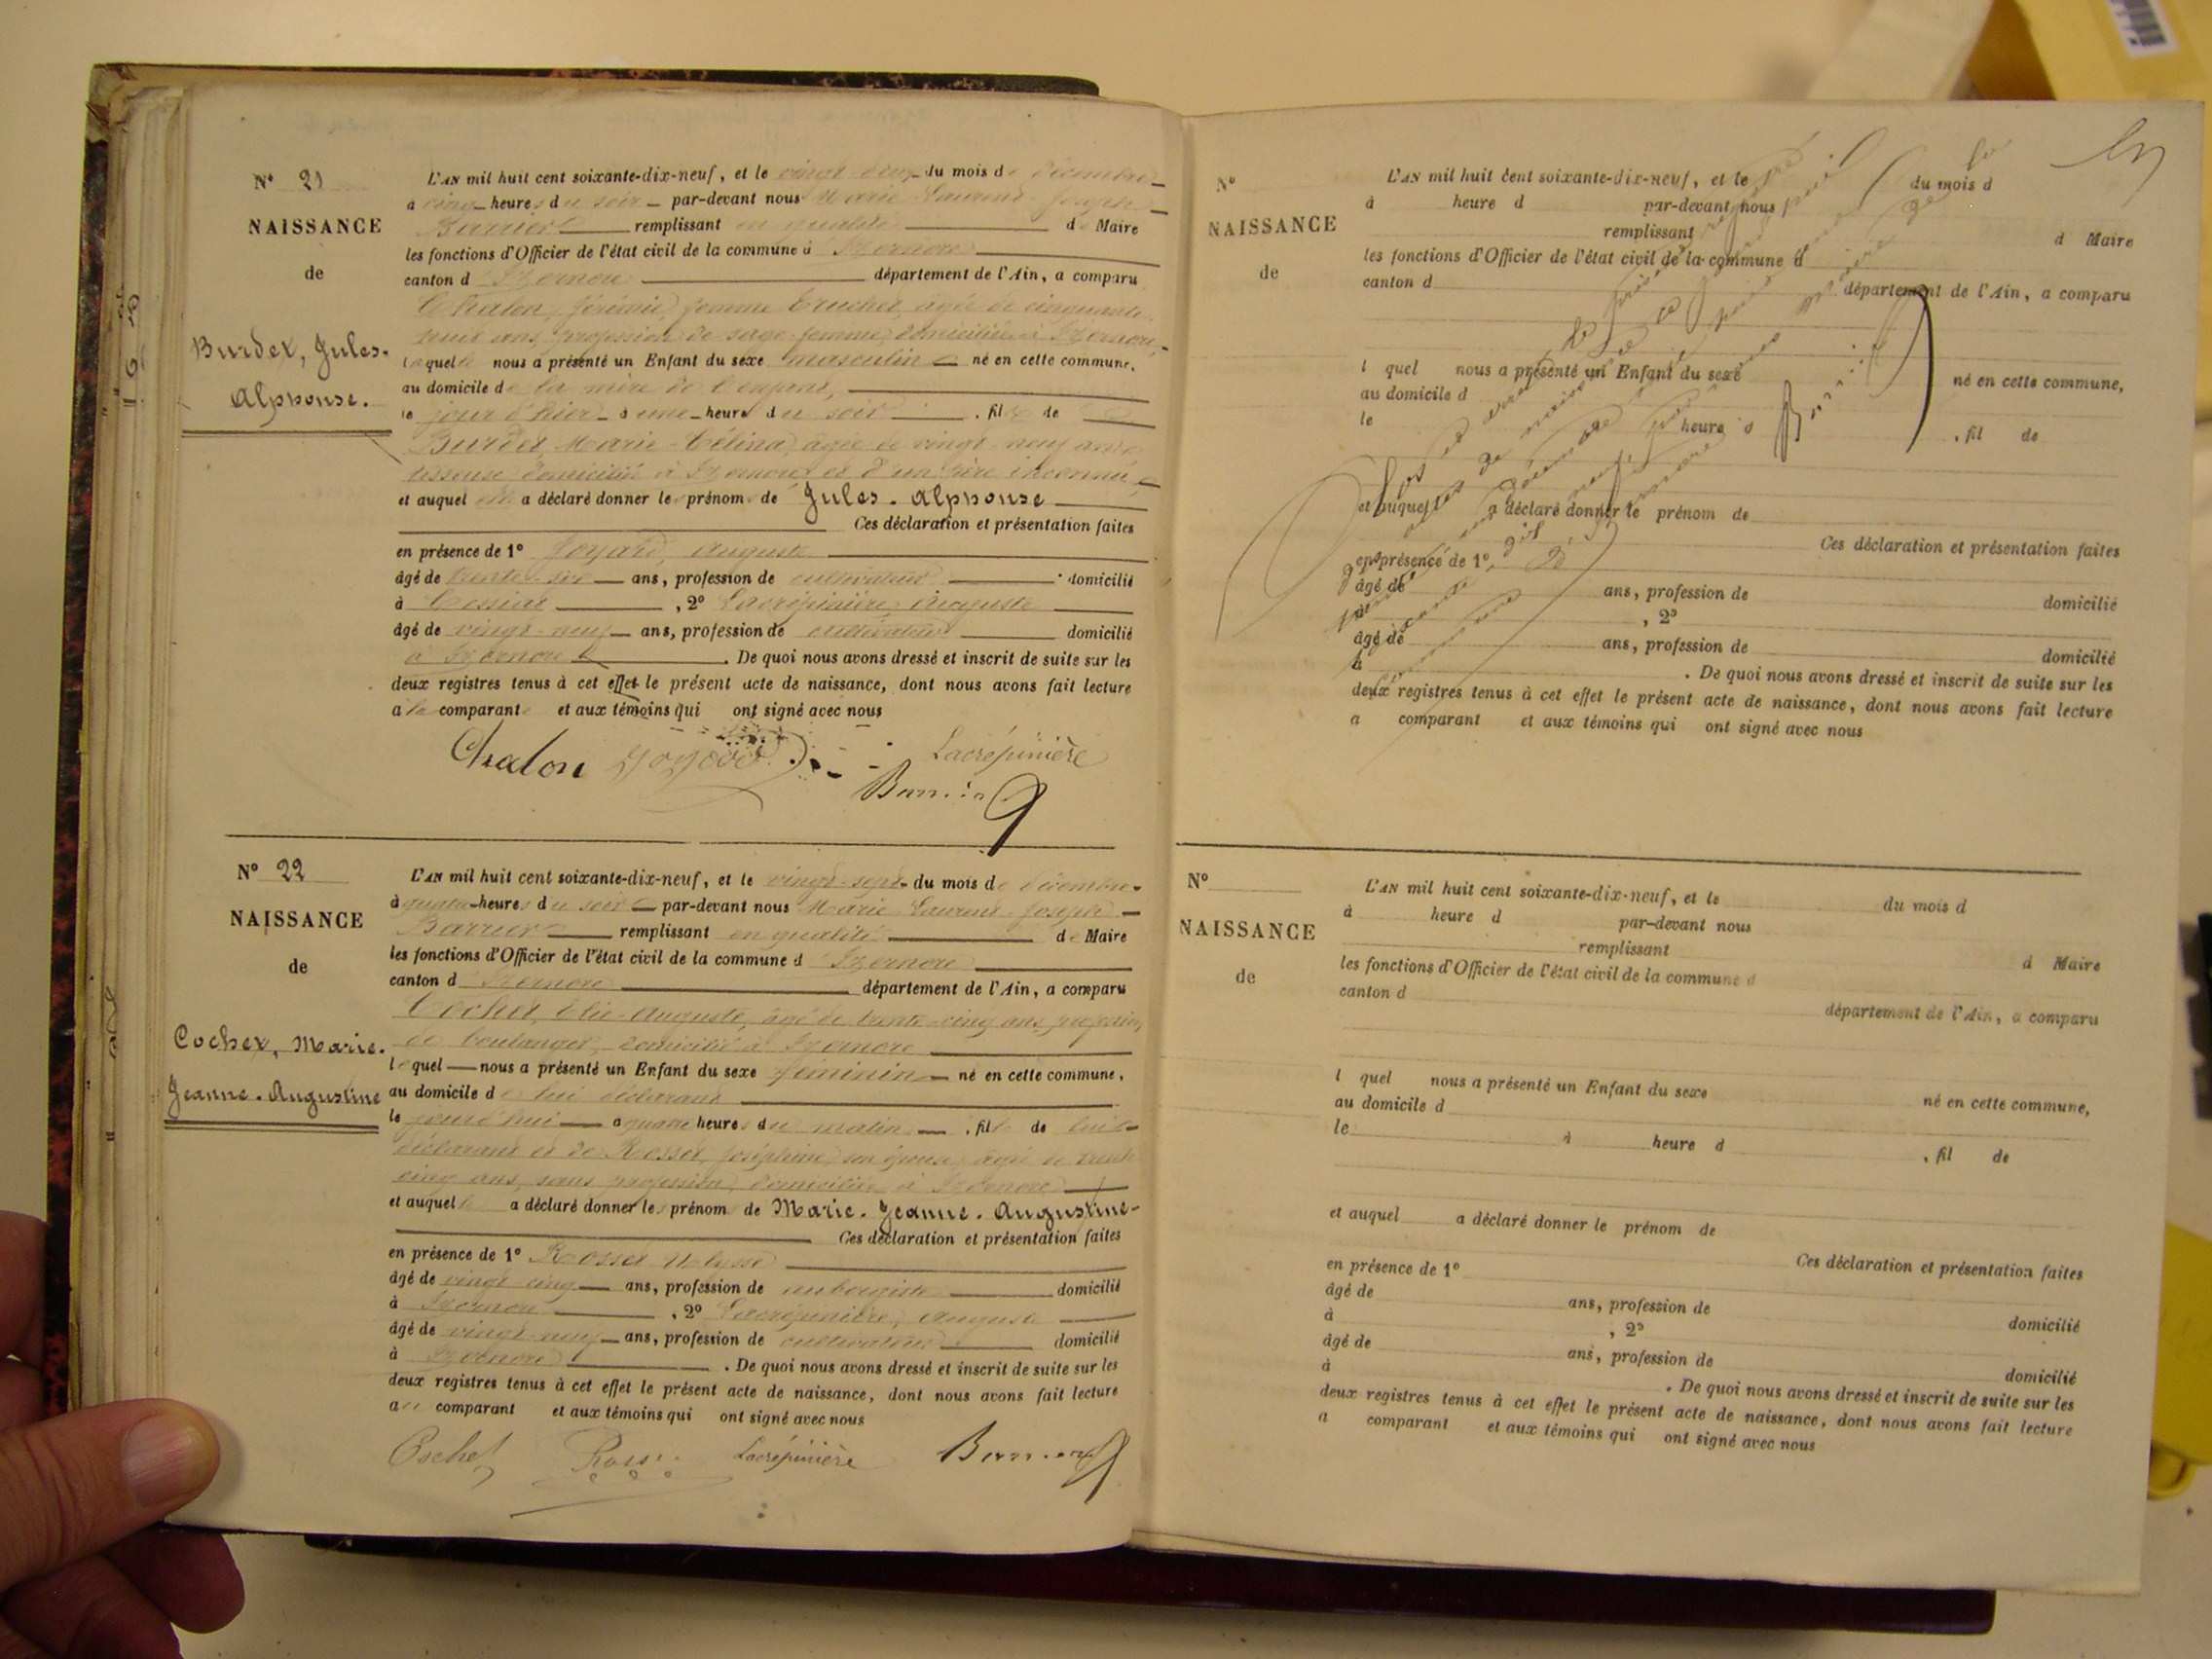 N° 21
NAISSANCE
de
Burdet, Jules-
Alphonse.
L'AN mil huit cent soixante-dix-neuf, et le vingt deux du mois de décembre
à cinq heures du soir par-devant nous Marie Laurent Joseph
remplissant en qualité de Maire
les fonctions d'Officier de l'état civil de la commune d'Izernore
canton d'Izernore département de l'Ain, a comparu
Chalon, femme âgée de cinquante
ans, profession de sage-femme, domiciliée à Izernore,
laquelle nous a présenté un Enfant du sexe masculin né en cette commune,
au domicile de la mère de l'enfant,
le jour d'hier à une heure du soir , fils de
Burdet, Marie-Célina, âgée de vingt-neuf ans
domiciliée à Izernore et d'un père inconnu
et auquel elle a déclaré donner les prénoms de Jules-Alphonse
Ces déclaration et présentation faites
en présence de 1° Goyard, Auguste
âgé de trente-six ans, profession de cultivateur domicilié
à , 2° Lacrépinière, Auguste
âgé de vingt-neuf ans, profession de cultivateur domicilié
à Izernore . De quoi nous avons dressé et inscrit de suite sur les
deux registres tenus à cet effet le présent acte de naissance, dont nous avons fait lecture
a la comparante et aux témoins qui ont signé avec nous
Chalon Goyard Lacrépinière
N° 22
NAISSANCE
de
Cochet, Marie-
Jeanne-Augustine
L'AN mil huit cent soixante-dix-neuf, et le vingt-sept du mois de décembre
à quatre heures du soir par-devant nous Marie Laurent Joseph
remplissant en qualité de Maire
les fonctions d'Officier de l'état civil de la commune d'Izernore
canton d'Izernore département de l'Ain, a comparu
Cochet, Elie-Auguste, âgé de trente-cinq ans, profession
de boulanger, domicilié à Izernore
lequel nous a présenté un Enfant du sexe féminin né en cette commune,
au domicile de lui déclarant
le jourd'hui à quatre heures du matin , fille de lui
déclarant et de Rosset, Joséphine, son épouse, âgée de trente
cinq ans, sans profession, domiciliée à Izernore
et auquel il a déclaré donner les prénoms de Marie-Jeanne-Augustine
Ces déclaration et présentation faites
en présence de 1° Rosset Ulysse
âgé de vingt-cinq ans, profession de aubergiste domicilié
à Izernore , 2° Lacrépinière, Auguste
âgé de vingt-neuf ans, profession de cultivateur domicilié
à Izernore . De quoi nous avons dressé et inscrit de suite sur les
deux registres tenus à cet effet le présent acte de naissance, dont nous avons fait lecture
au comparant et aux témoins qui ont signé avec nous
Cochet Lacrépinière
N°
NAISSANCE
de
L'AN mil huit cent soixante-dix-neuf, et le du mois d
à heure d par-devant nous
remplissant d Maire
les fonctions d'Officier de l'état civil de la commune d
canton d département de l'Ain, a comparu
l quel nous a présenté un Enfant du sexe né en cette commune,
au domicile d
le heure d , fil de
et auquel a déclaré donner le prénom de
Ces déclaration et présentation faites
en présence de 1°
âgé de ans, profession de domicilié
à , 2°
âgé de ans, profession de domicilié
à . De quoi nous avons dressé et inscrit de suite sur les
deux registres tenus à cet effet le présent acte de naissance, dont nous avons fait lecture
a comparant et aux témoins qui ont signé avec nous
N°
NAISSANCE
de
L'AN mil huit cent soixante-dix-neuf, et le du mois d
à heure d par-devant nous
remplissant d Maire
les fonctions d'Officier de l'état civil de la commune d
canton d département de l'Ain, a comparu
l quel nous a présenté un Enfant du sexe né en cette commune,
au domicile d
le à heure d , fil de
et auquel a déclaré donner le prénom de
Ces déclaration et présentation faites
en présence de 1°
âgé de ans, profession de domicilié
à , 2°
âgé de ans, profession de domicilié
à . De quoi nous avons dressé et inscrit de suite sur les
deux registres tenus à cet effet le présent acte de naissance, dont nous avons fait lecture
a comparant et aux témoins qui ont signé avec nous